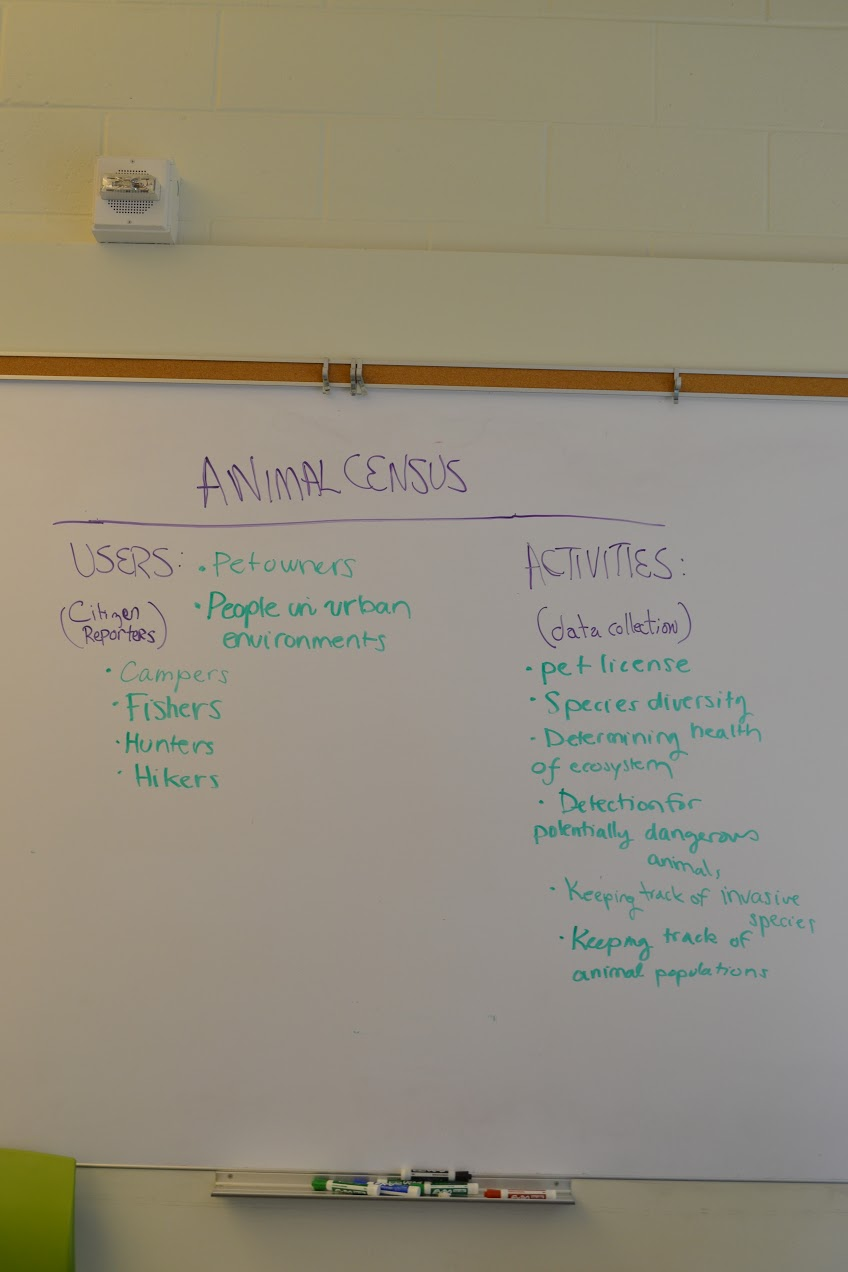 ANIMAL CENSUS
USERS:
(Citizen
Reporters)
• Pet owners
• People in urban
environments
• Campers
• Fishers
• Hunters
• Hikers
ACTIVITIES:
(data collection)
• pet license
• Species diversity
• Determining health
of ecosystem
• Detection for
potentially dangerous
animals
• Keeping track of invasive
species
• Keeping track of
animal populations